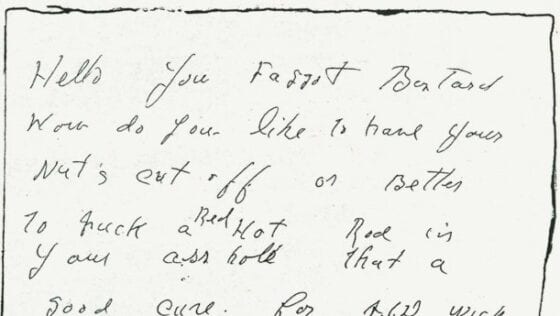 Hello You Faggot Bastard
How do you like to have your
Nut's cut off or Better
To fuck a Red Hot Rod in
your ass hole that a
good cure. for